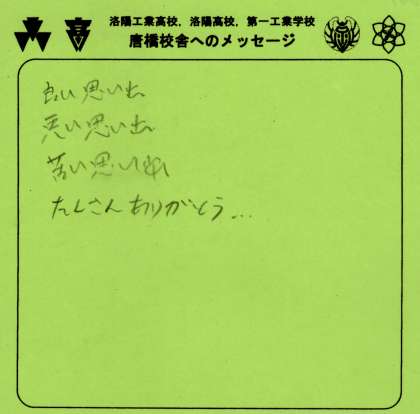 洛陽工業高校，洛陽高校，第一工業学校
唐橋校舎へのメッセージ
良い思い出
悪い思い出
苦い思い出
たくさんありがとう…